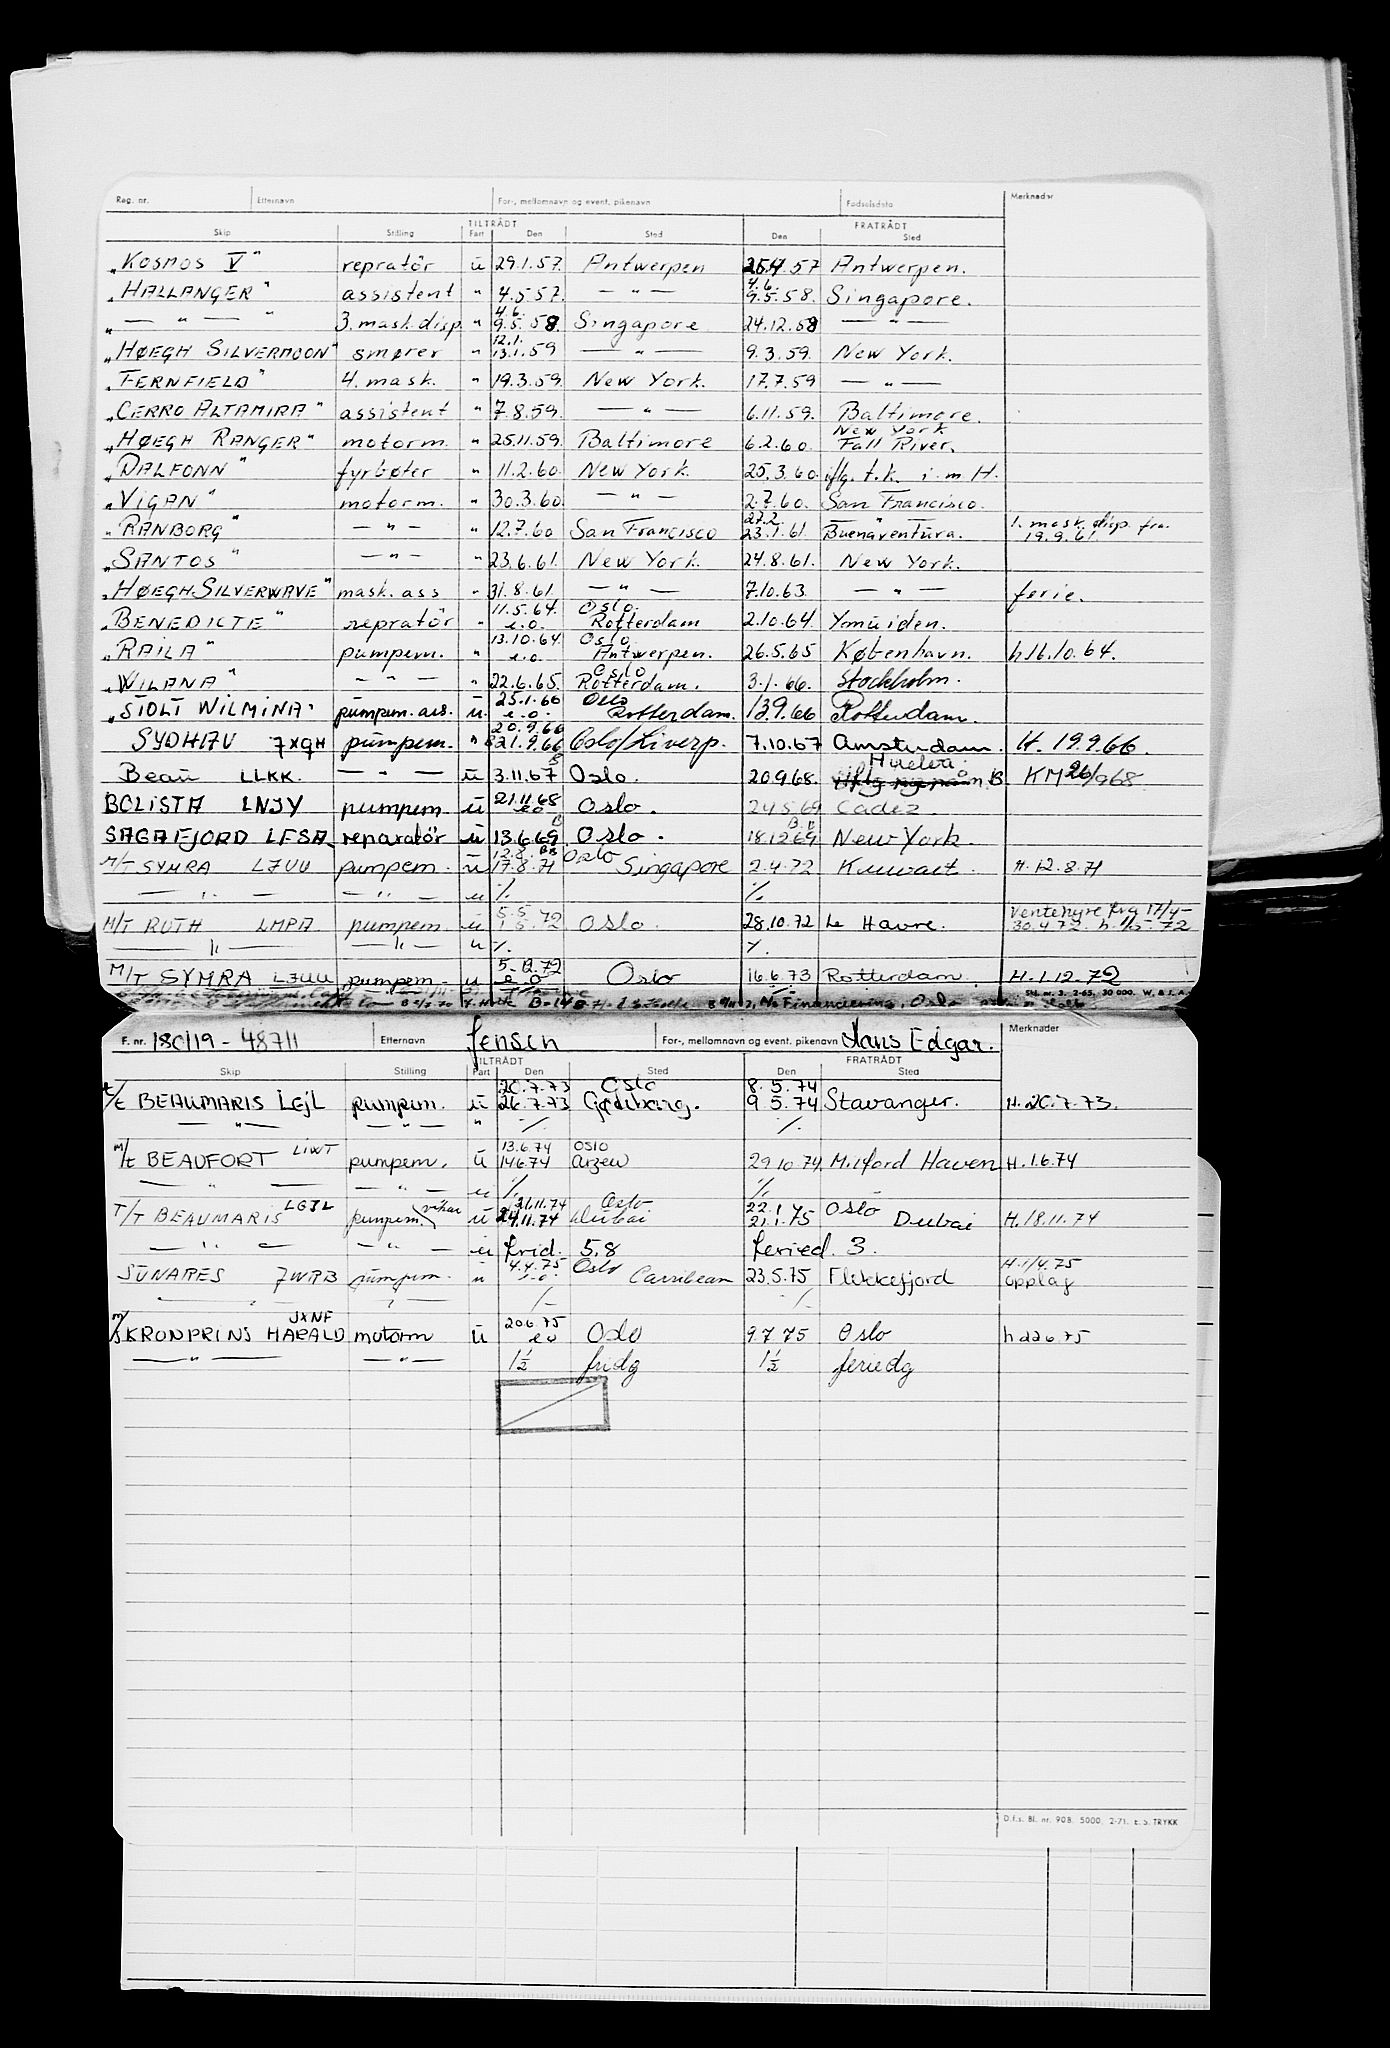 Reg. nr. Etternavn For-, mellomnavn og event. pikenavn Fødselsdato Merknader
TILTRÅDT FRATRÅDT
Skip Stilling Fart Den Sted Den Sted
„KOSMOS V" repratör ü 29.1.57. Antwerpen 57 Antwerpen.
4.6.
„HALLANGER" assistent " 4.5.57. — " — 9.5.58. Singapore.
4.6.
„— " — " 3. mask.disp. " 9.5.58. Singapore 24.12.58 — " —
12.1.
„HØEGH SILVERMOON" smører " 13.1.59 — " — 9.3.59. New York.
„FERNFIELD" 4. mask. " 19.3.59. New York. 17.7.59 — " —
„CERRO ALTAMIRA" assistent " 7.8.59. — " — 6.11.59. Baltimore.
New York
„HØEGH RANGER" motorm. " 25.11.59. Baltimore 6.2.60. Fall River.
„DALFONN" fyrbøter " 11.2.60. New York. 25.3.60. iflg. t.k. i.m H.
„VIGAN" motorm. " 30.3.60. — " — 2.7.60. San Francisco.
27.2.
„RANBORG" — " — " 12.7.60 San Francisco 23.1.61. Buenaventura. 1. mask. disp. fra
19.9.61
„SANTOS" — " — " 23.6.61. New York. 24.8.61. New York.
„HØEGH SILVERWAVE" mask. ass " 31.8.61. — " — 7.10.63. — " — ferie.
11.5.64. Oslo.
„BENEDICTE" repratör " e.o. Rotterdam 2.10.64 Ymuiden.
13.10.64. Oslo
„RAILA" pumpem. " e.o. Antwerpen. 26.5.65 København. h.16.10.64.
Oslo
„WILANA" — " — " 22.6.65. Rotterdam. 3.1.66. Stockholm.
25.1.66 Oslo
„STOLT WILMINA" pumpm. ass. ü. e.o. Rotterdam. 13.9.66 Rotterdam.
20.9.66
SYDHAV JXQH pumpem. " 21.9.66 Oslo/Liverp. 7.10.67 Amsterdam. H. 19.9.66.
Huelva
Beau LLKK. — " — ü 3.11.67 Oslo. 20.9.68. B. KM 26/9 68
21.11.68
BOLISTA LNJY pumpem. ü eo Oslo. 24.5.69 Cadez
SAGAFJORD LFSA reparatör ü 13.6.69 Oslo. 18.12.69 New York.
12.8. Oslo
M/T SYMRA LJUU pumpem. ü 17.8.71 Singapore 2.4.72 Kuwait. H. 12.8.71
— " — — " — u ./. ./.
5.5 Ventehyre fra 17/4-
M/T RUTH LMPA pumpem. ü 1.5.72 Oslo. 28.10.72 Le Havre. 30.4.72. h. 1/5-72
— " — — " — u ./. ./.
5.12.72
M/T SYMRA LJUU pumpem u e o Oslo 16.6.73 Rotterdam. H.1.12.72
Skj. nr. 3. 2-65, 30 000. W. & L. A
F. nr. 180119 - 48711 Etternavn Jensen For-, mellomnavn og event. pikenavn Hans Edgar. Merknader
TILTRÅDT FRATRÅDT
Skip Stilling Fart Den Sted Den Sted
20.7.73 Oslo 8.5.74
t/t BEAUMARIS LGJL pumpm. ü 26.7.73 Gøteborg. 9 5.74 Stavanger. H.20.7.73.
— " — — " — " ./.
13.6.74 OSLO
m/t BEAUFORT LIWT pumpem. ü 14.6.74 Arzew 29 10 74 Milford Haven H.1.6.74
— " — — " — u ./. ./.
21.11.74 Oslo 22.1
T/T BEAUMARIS LGJL pumpem. vikar ü 24.11.74 Dubai 21.1.75 Oslo Dubai H.18.11.74
— " — — " — u frid. 5,8 feried. 3.
4.4.75 Oslo H.1/4.75
SUNARES JWRB pumpm. u e.o. Carribean 23.5.75 Flekkefjord opplag
" " ./. ./.
JXNF 20.6.75
M/S KRONPRINS HARALD motorm ü eo Oslo 9.7 75 Oslo h d 22 6.75
— " — — " — 1½ fridg 1½ feriedg
D.f.s. Bl. nr. 908. 5000. 2-71. E.S. TRYKK